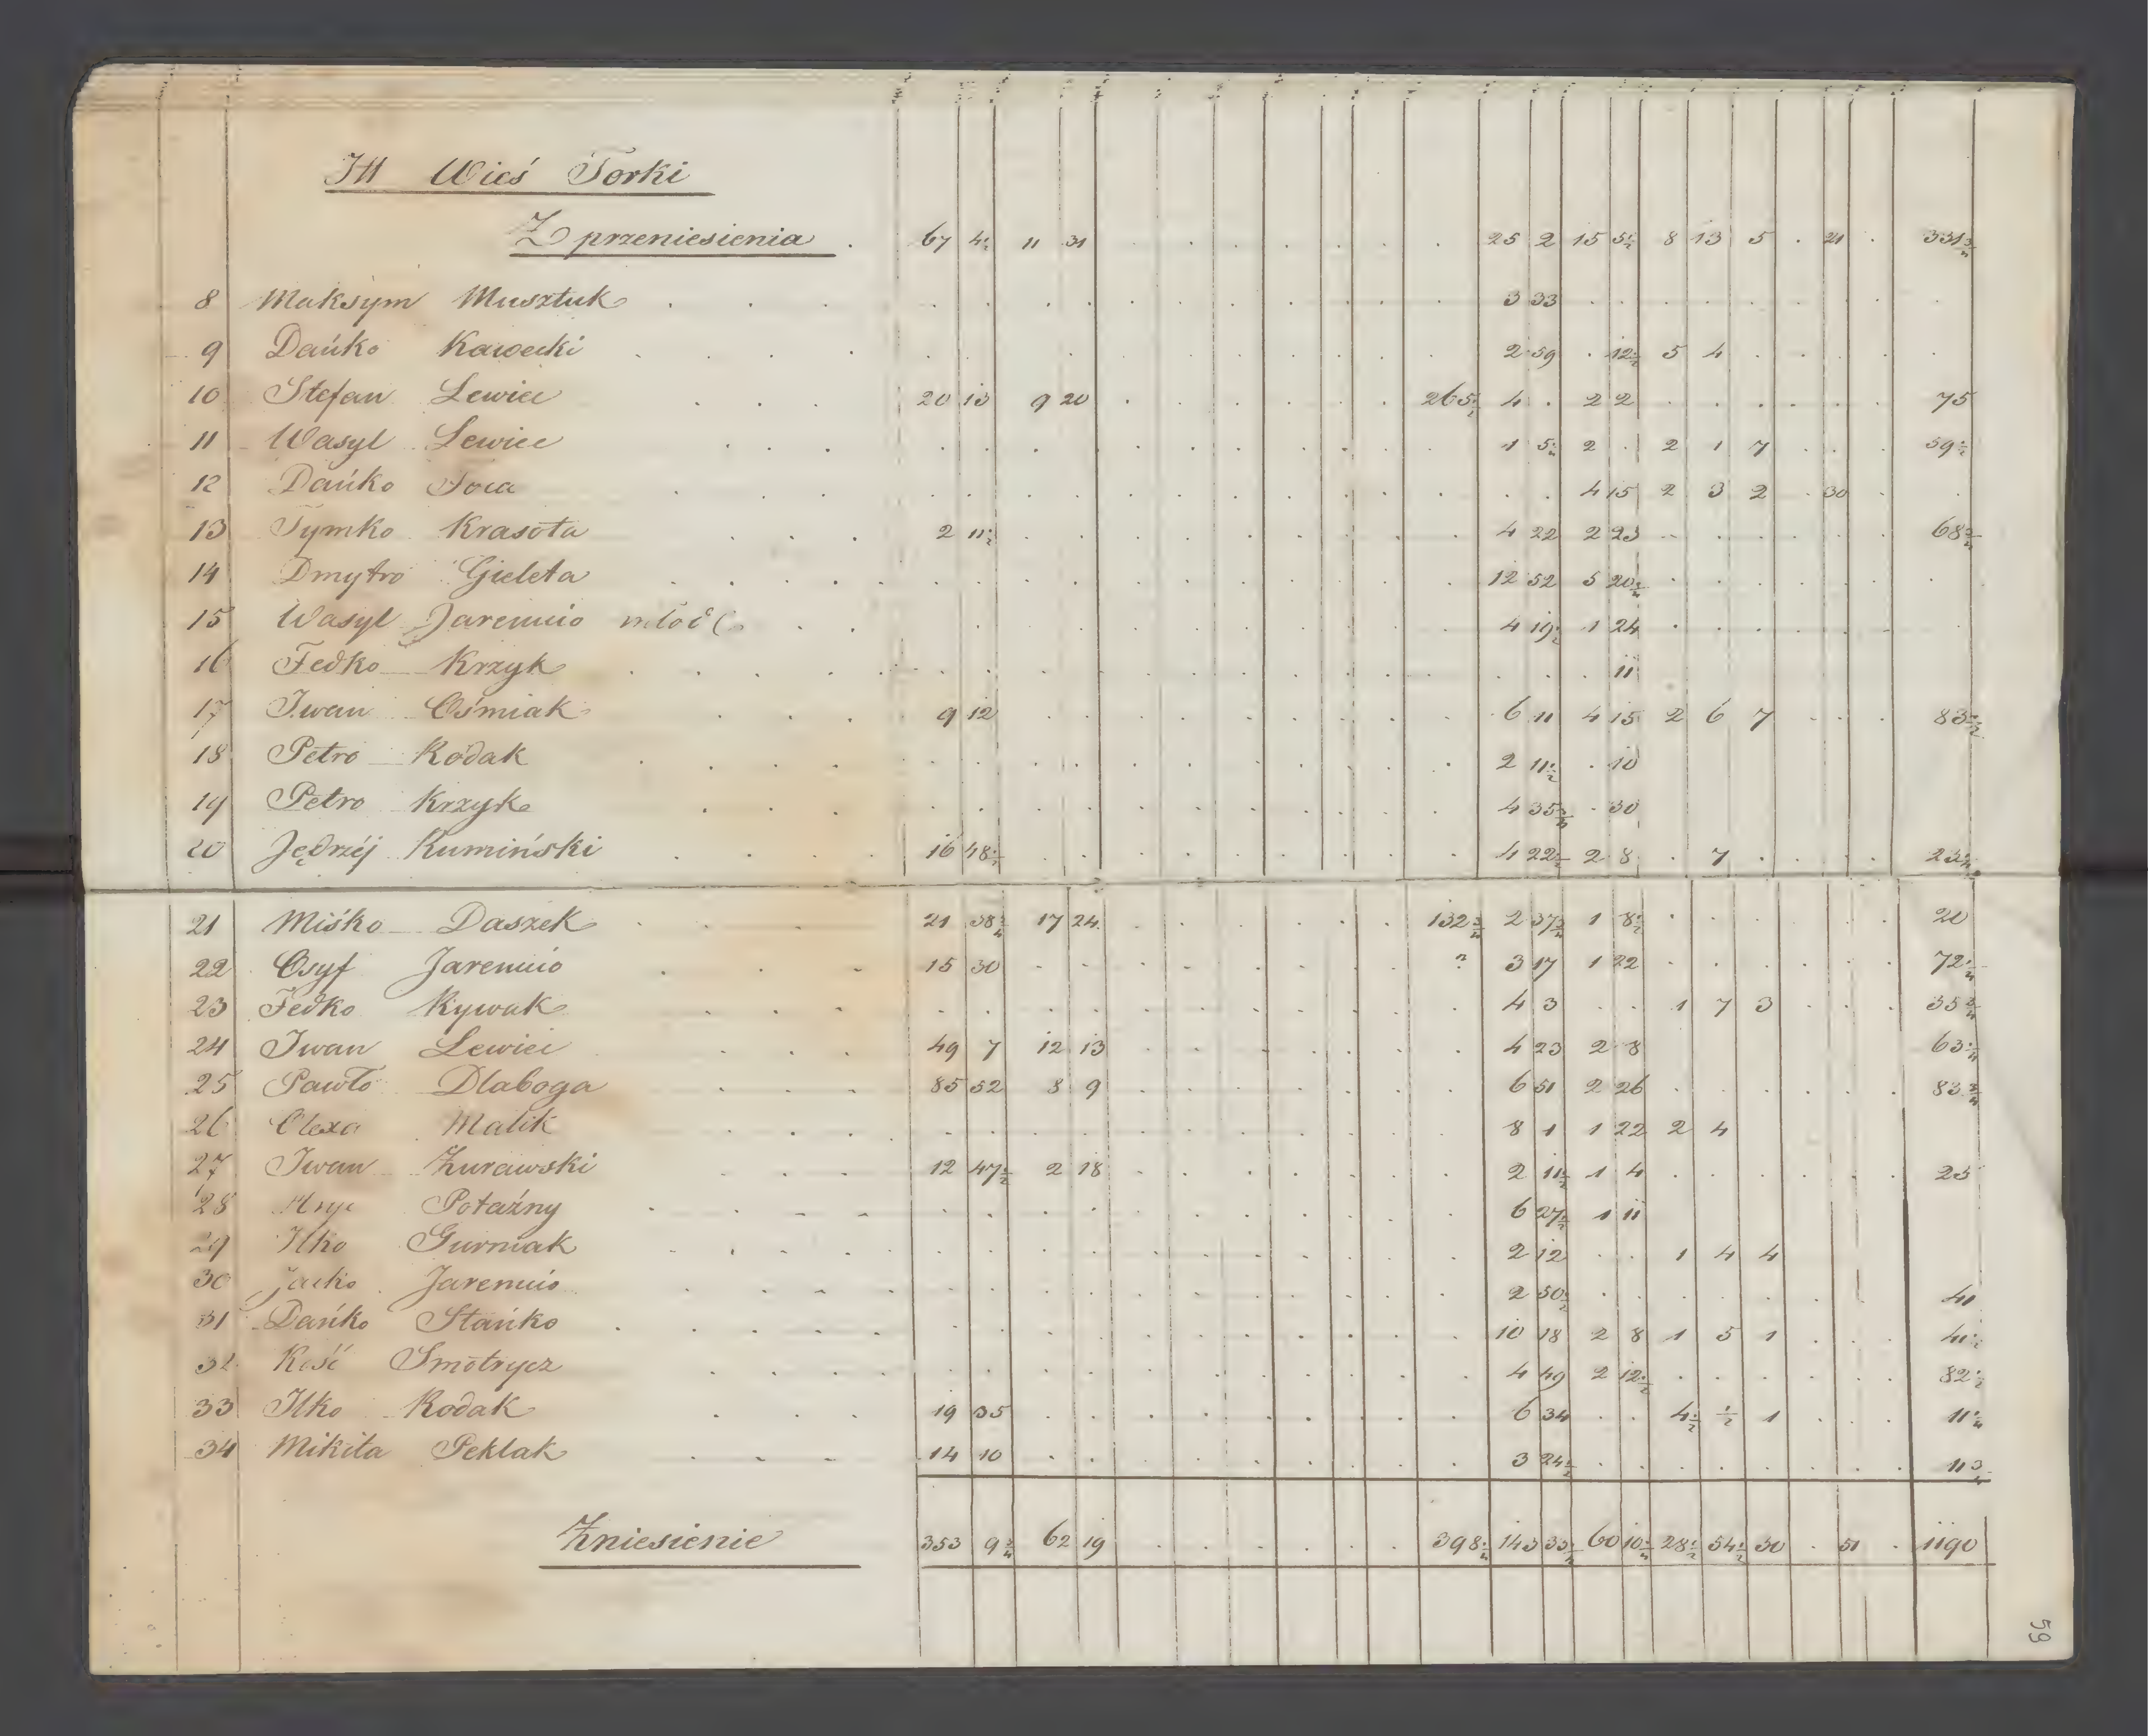 III Wieś Torki
Z przeniesienia . 67 4½ 11 31 25 2 15 5½ 8 13 5 . 21 . 331¾
8 Maksym Musztuk 3 33
9 Dańko Kawecki 2 59 . 12½ 5 4
10 Stefan Lewicc 20 13 9 20 265½ 4 . 2 2 75
11 Wasyl Lewicc 1 5¼ 2 . 2 1 7 59½
12 Dańko 4 15 2 3 2 . 30
13 Tymko Krasota 2 11½ 4 22 2 23 68¾
14 Dmytro Gieleta 12 52 5 20¼
15 Wasyl Jaremcio młod 4 19½ 1 24
16 Fedko Krzyk 11
17 Iwan Ośmiak 9 12 6 11 4 15 2 6 7 83½
18 Petro Kodak 2 11½ . 10
19 Petro Krzyk 4 35¾ . 30
20 Jędrzéj Kumiński 16 48½ 4 22½ 2 8 . 7
21 Miśko Daszek 21 38¼ 17 24 132¾ 2 37¾ 1 8½ 20
22 Osyf Jaremcio 15 30 3 17 1 22 72¼
23 Fedko Kywak 4 3 . . 1 7 3 35¾
24 Iwan Lewicc 49 7 12 13 4 23 2 8 63¼
25 Pawło Dlaboga 85 52 8 9 6 51 2 26 83¾
26 Olexa Malik 8 1 1 22 2 4
27 Iwan Żurawski 12 47½ 2 18 2 11½ 1 4 25
28 Hryć Potażny 6 27½ 1 11
29 Ilko Gurniak 2 12 . . 1 4 4
30 Jacko Jaremcio 2 50½ 41
31 Dańko Stańko 10 18 2 8 1 5 1 41½
32 Kość Smotrycz 4 49 2 12½ 82½
33 Ilko Kodak 19 35 6 34 . . 4½ ½ 1 11¼
34 Mikita Peklak 14 10 3 24½
Zniesienie 353 9¾ 62 19 398¼ 143 33¼ 60 10¼ 28½ 54½ 30 . 51 . 1190
59